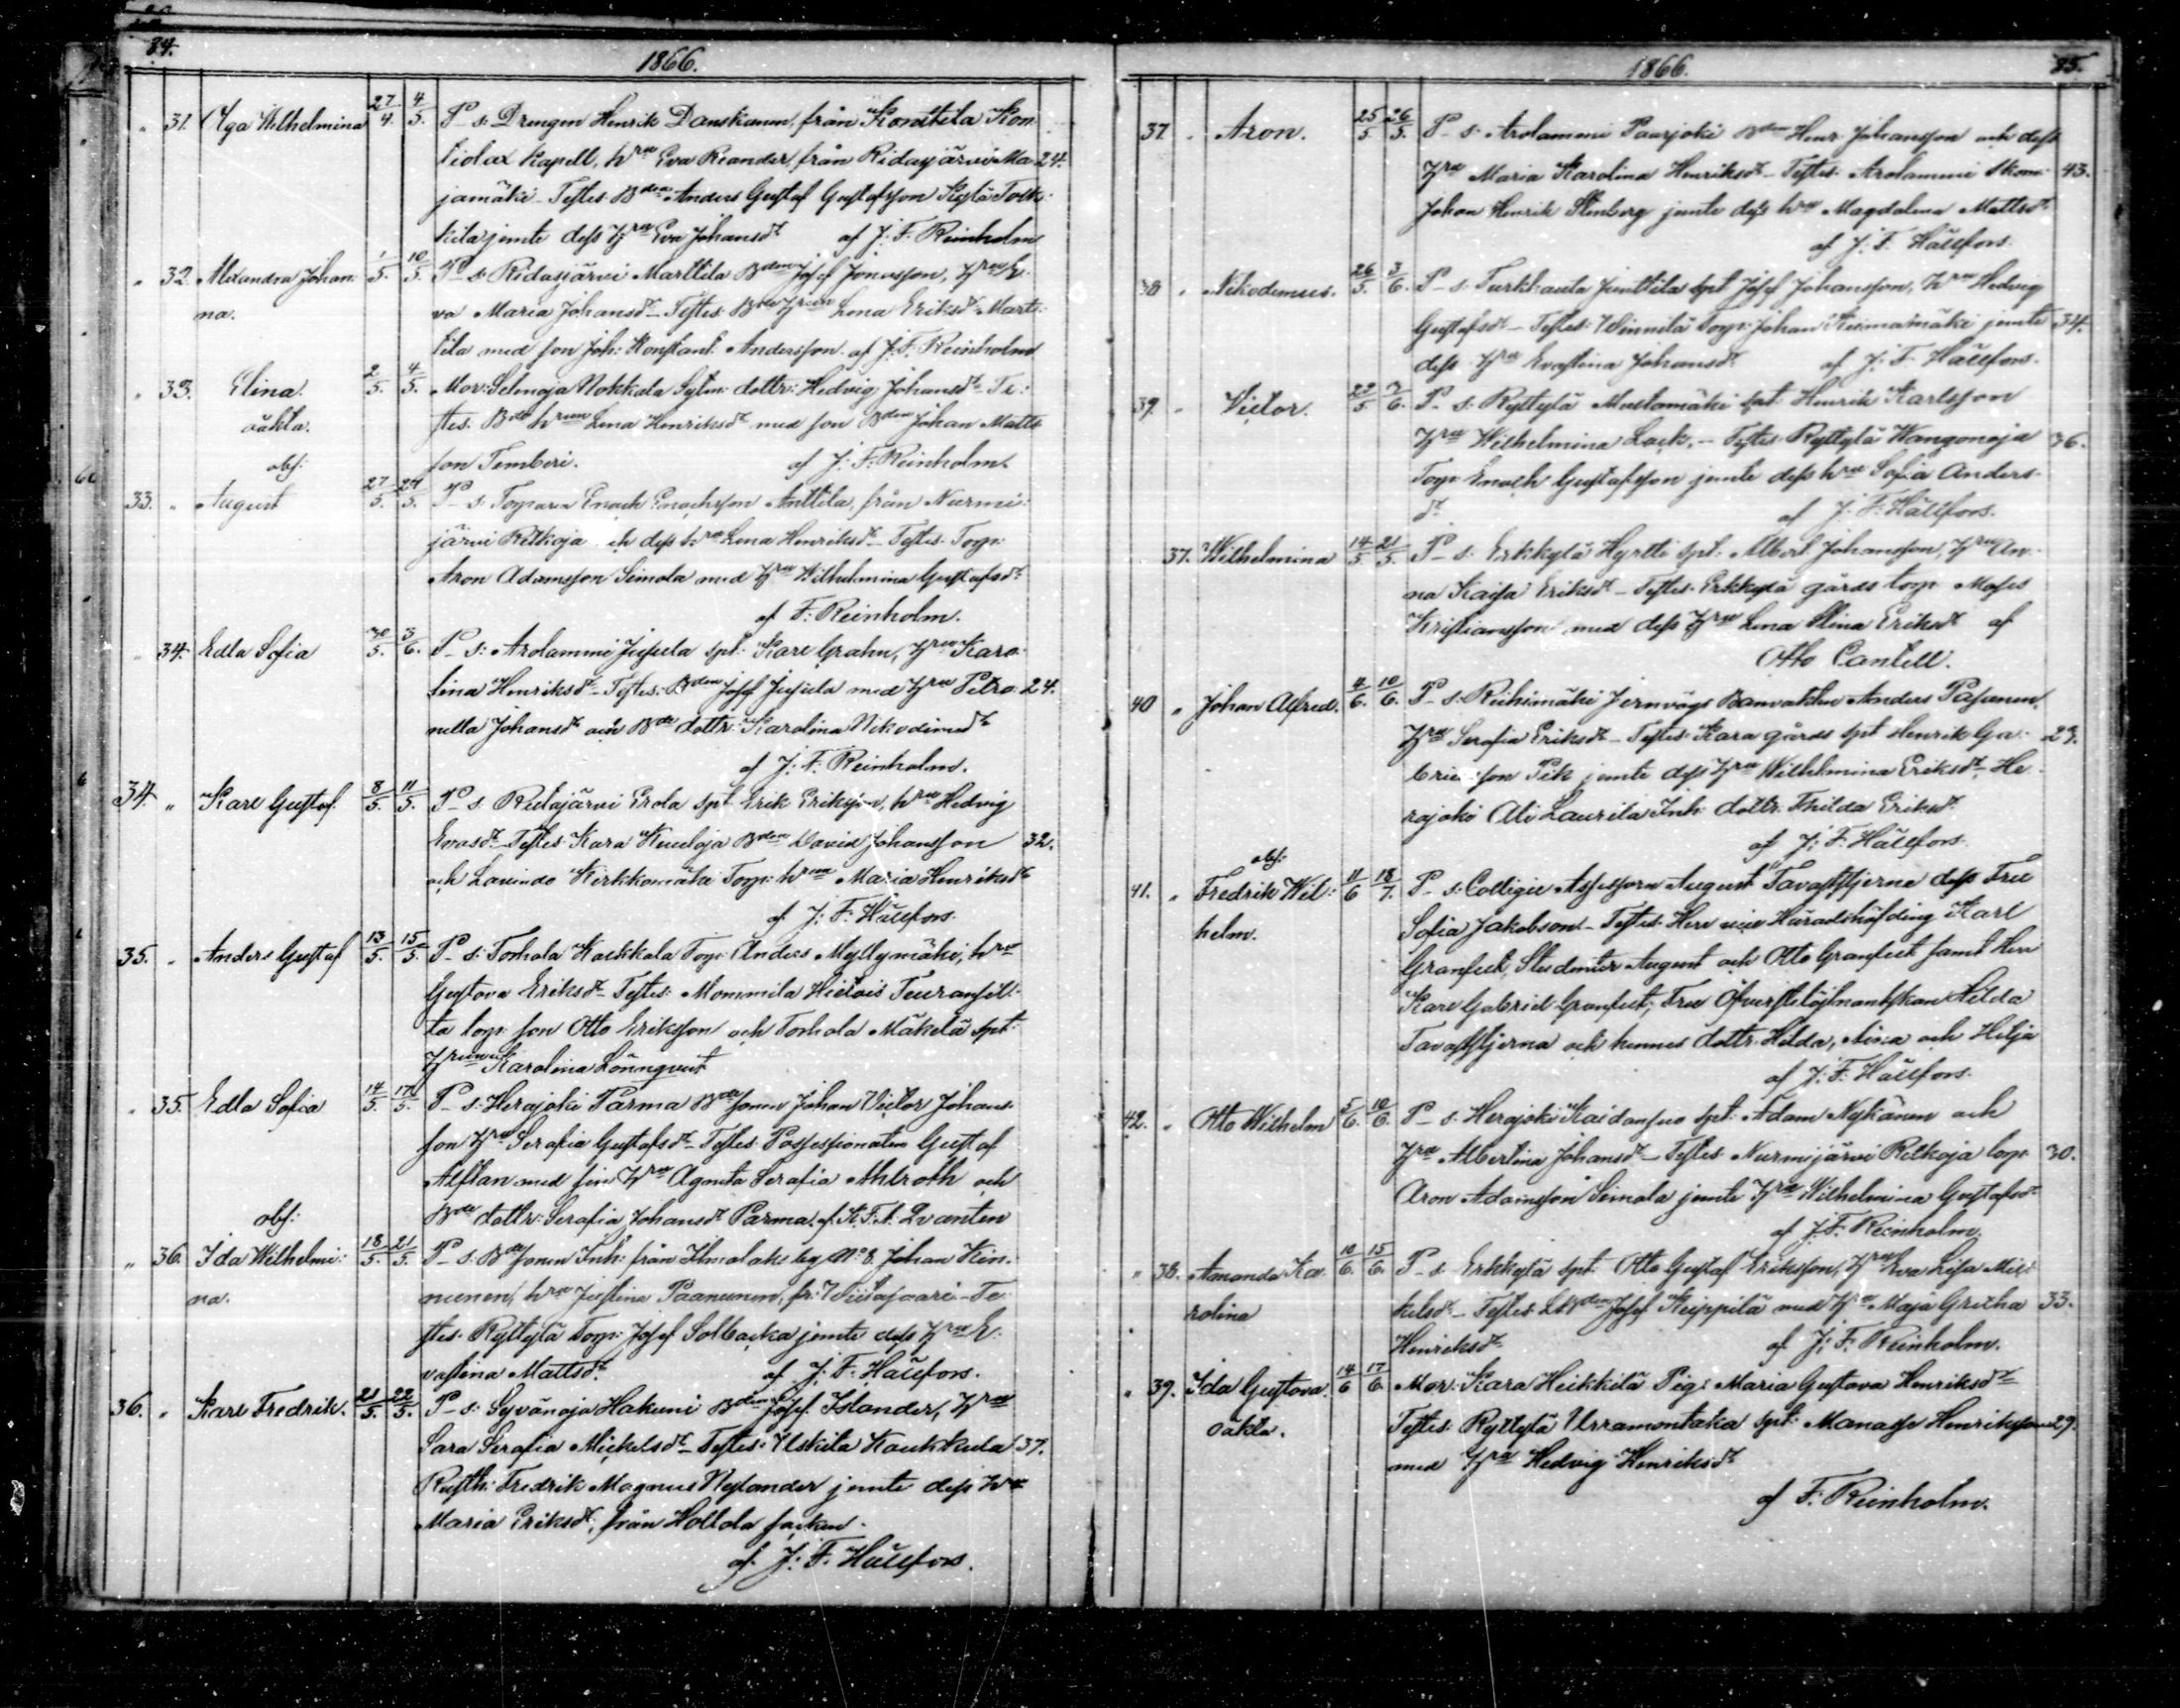 84.
1866.
" 31. Olga Wilhelmina 27/4. 4/5. P. s. Drengen Henrik Danskanen, från Konttila Kon
tiolax Kapell, hru Eva Reander, från Ridasjärvi Ma 24.
jamäki - Testes Bden Anders Gustaf Gustafsson
kila jemte dess Hru Eva Johansdr af J. F. Reinholm
" 32. Alexandra Johan: 1/5. 10/5. P. s. Ridasjärvi Marttila Bden Josef Jonasson, Hru E.
na. va Maria Johansdr - Testes Bde Hrun Lena Eriksdr Mart:
tila med son Joh: Konstant. Andersson. af J. F. Reinholm
" 33. Elina. 2/5. 4/5. Mor: Selmoja Nokkala Sytn: dottr: Hedvig Johansdr - Te:
oäkta. stes. Bde hrun Lena Henriksdr med son Bden Johan Matts
obs: son Temberi. af J. F. Reinholm.
33. " August 27/5. 29/5. P. s. Torparen Enoch Enochsson Anttila, från Nurmi:
järvi Ritkoja och dess hru Lena Henriksdr - Testes Torp:
Aron Adamsson Simola med Hru Wilhelmina Gustafsdr
af F. Reinholm.
" 34. Edla Sofia 30/5. 3/6. P. s. Arolammi Jusula spt: Karl Grahn, Hru Karo
lina Henriksdr - Testes. Bden Josef Jusula med Hru Petro: 24.
nella Johansdr och Bde dottr: Karolina Nikodimusdr
af J. F. Reinholm.
34. " Karl Gustaf. 8/5. 11/5. P. s. Ridasjärvi Erola spt Erik Eriksson, hru Hedvig
Evasdr - Testes Kara Kuuloja Bden David Johansson 32.
och Lavinda Kirkkomäki Torp: hrun Maria Henriksdr
af J. F. Hällfors.
35. " Anders Gustaf 13/5. 15/5. P. s. Torhola Kaukkala Torp: Anders Myllymäki, hru
Gustava Eriksdr Testes. Mommila Hietois
ta torp: son Otto Eriksson och Torhola Mäkelä spt:
Hrun Karolina Lönnqvist
" 35. Edla Sofia 14/5. 17/5. P. s. Herajoki Parma Bde sonen Johan Victor Johans
son Hru Serafia Gustafsdr - Testes Possessionaten Gustaf
Alftan med sin Hru Agneta Serafia Ahlroth och
obs: Bde dottr: Serafia Johansdr Parma. af K. F. A. Qvanten
" 36. Ida Wilhelmi: 18/5. 21/5. P. s. Bde sonen Inh: från Ilmolaks by No 8. Johan Kin
na. nunen, hru Justina Paananen, fr: Wiitasaari - Te
stes. Ryttylä Torp: Josef Solbacka jemte dess Hru E:
vastina Mattsdr. af J. F. Hällfors.
36. " Karl Fredrik. 21/5. 22/5. P. s. Syvänoja Hakuni Bden Josef Islander, Hru
Sara Serafia Mickelsdr - Testes: Uskila Kaukkula 37.
Rusth: Fredrik Magnus Nylander jemte dess Hru
Maria Eriksdr, från Hollola socken.
af J. F. Hällfors.
1866.
85.
37. " Aron. 25/5 26/5. P. s. Arolammi Paarjoki Bden Henr. Johansson och dess
Hru Maria Karolina Henriksdr - Testes. Arolammi Skom. 43.
Johan Henrik Stenberg jemte dess hru Magdalena Mattsdr.
af J. F. Hällfors.
38 " Nikodemus. 26/5. 3/6. P. s. Turkhauta Junttila spt Josef Johansson, hru Hedvig
Gustafsdr - Testes: Winnilä Torp: Johan jemte 34.
dess Hru Evastina Johansdr af J. F. Hällfors.
39. " Victor. 29/5 7/6. P. s. Ryttylä Mustamäki spt Henrik Karlsson
Hru Wilhelmina Lack, - Testes Ryttylä Wangonoja 36.
Torp: Enoch Gustafsson jemte dess hru Sofia Anders
dr af J. F. Hällfors.
37. Wilhelmina 14/5 21/5. P. s. Erkkylä Hyrtti spt. Albert Johansson, Hru An
na Kaisa Eriksdr - Testes. Erkkylä gårds torp: Moses
Kristiansson med dess Hru Lena Stina Eriksdr af
Otto Cantell.
40 " Johan Alfred. 4/6. 10/6. P. s. Riihimäki Jernvägs Banvakten Anders Pasanen,
Hru Serafia Eriksdr - Testes Kara gårds spt Henrik Ga: 29.
brielsson Pik jemte dess Hru Wilhelmina Eriksdr, He
rajoki Ali Laurila Inh: dottr. Thilda Eriksdr
af J. F. Hällfors.
obs:
41. " Fredrik Wil: 11/6 18/7. P. s. Collegii Assessorn August Tavaststjerna dess Fru
helm. Sofia Jakobson - Testes. Herr vice Häradshöfding Karl
Granfelt, Studenter August och Otto Granfelt samt Herr
Karl Gabriel Granfelt, Fru Öfverstelöjtnantskan Hilda
Tavaststjerna och hennes dottr. Hilda, Aina och Hilja
af J. F. Hällfors.
42. " Otto Wilhelm 5/6. 10/6. P. s. Herajoki Kaidansuo spt: Adam Nykänen och
Hru Albertina Johansdr - Testes Nurmijärvi Ritkoja torp: 30.
Aron Adamsson Simola jemte Hru Wilhelmina Gustafsdr.
af J. F. Reinholm.
" 38. Amanda Ka: 10/6. 15/6. P. s. Erkkylä spt. Otto Gustaf Eriksson, Hru Eva Lisa Mic
rolina kelsdr - Testes. Bden Josef Keippilä med Hru Maja Gretha 33.
Henriksdr. af J. F. Reinholm.
" 39. Ida Gustava. 14/6 17/6. Mor: Kara Heikkilä Pig: Maria Gustava Henriksdr
oäkta. Testes. Ryttylä Urramontaka spt: Manasse Henriksson 29.
med Hru Hedvig Henriksdr
af F. Reinholm.